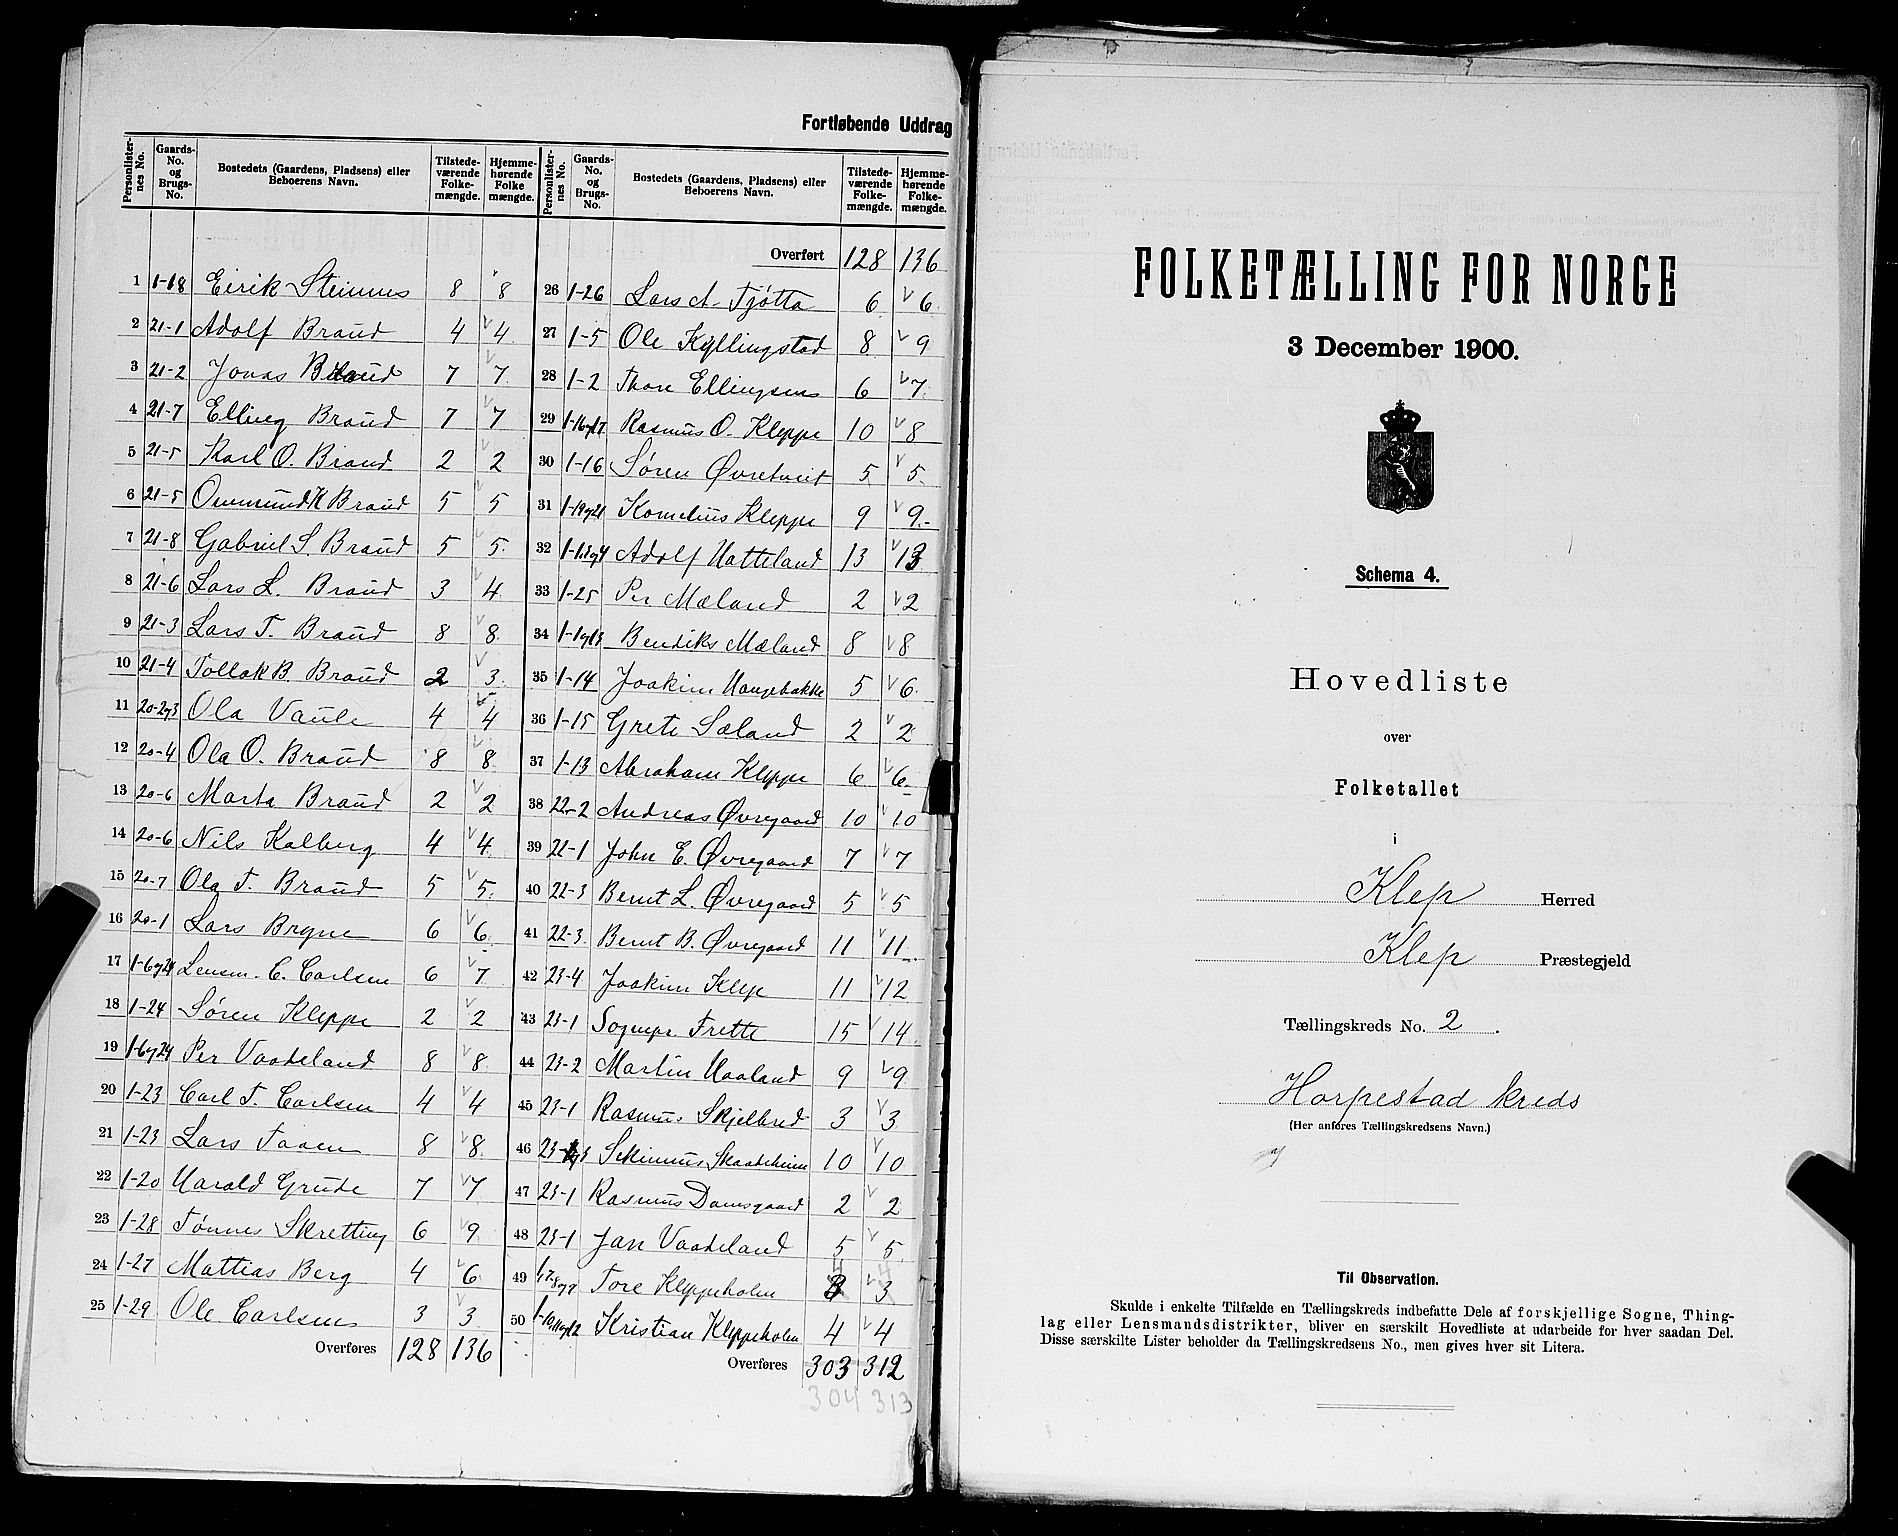 Fortløbende Uddrag
Personlister-nes No. | Gaards-No. og Brugs-No. | Bostedets (Gaardens, Pladsens) eller Beboerens Navn. | Tilstede-værende Folke-mængde. | Hjemme-hørende Folke mængde.
1 1-18 Eirik Steinnes 8 8
2 21-1 Adolf Braud 4 4
3 21-2 Jonas Braud 7 7
4 21-7 Elling Braud 7 7
5 21-5 Karl O. Braud 2 2
6 21-5 Ommund K Braud 5 5
7 21-8 Gabriel S. Braud 5 5
8 21-6 Lars L. Braud 3 4
9 21-3 Lars T. Braud 8 8
10 21-4 Tollak B. Braud 2 3
11 20-2og3 Ola Vaule 4 4
12 20-4 Ola O. Braud 8 8
13 20-6 Marta Braud 2 2
14 20-6 Nils Kalberg 4 4
15 20-7 Ola T. Braud 5 5
16 20-1 Lars Bryne 6 6
17 1-6og24 Lensm. C. Carlsen 6 7
18 1-24 Søren Kleppe 2 2
19 1-6og24 Per Vaadeland 8 8
20 1-23 Carl T. Carlsen 4 4
21 1-23 Lars Taaen 8 8
22 1-20 Harald Grude 7 7
23 1-28 Tønnes Skretting 6 9
24 1-27 Mattias Berg 4 6
25 1-29 Ole Carlsen 3 3
Overføres 128 136
Personlister-nes No. | Gaards-No. og Brugs-No. | Bostedets (Gaardens, Pladsens) eller Beboerens Navn. | Tilstede-værende Folke-mængde. | Hjemme-hørende Folke-mængde.
Overført 128 136
26 1-26 Lars A. Tjøtta 6 6
27 1-5 Ole Kyllingstad 8 9
28 1-2 Thore Ellingsen 6 7
29 1-16og17 Rasmus O. Kleppe 10 8
30 1-16 Søren Øvretveit 5 5
31 1-19og21 Kornelius Kleppe 9 9
32 Adolf Hatteland 13 13
33 1-25 Per Mæland 2 2
34 1-1og13 Bendiks Mæland 8 8
35 1-14 Joakim Haugebakke 5 6
36 1-15 Grete Sæland 2 2
37 1-13 Abraham Kleppe 6 6
38 22-2 Andreas Øvregaard 10 10
39 22-1 John E. Øvregaard 7 7
40 22-3 Bernt L. Øvregaard 5 5
41 22-3 Bernt B. Øvregaard 11 11
42 23-4 Joakim Klep 11 12
43 23-1 Sognepr. Frette 15 14
44 23-2 Martin Haaland 9 9
45 23-1 Rasmus Skjelbred 3 3
46 Skaadeheim 10 10
47 23-1 Rasmus Damsgaard 2 2
48 23-1 Jan Vaadeland 5 5
49 Tore Kleppeholen 3 3
50 Kristian Kleppeholen 4 4
Overføres 303 312
304 313
FOLKETÆLLING FOR NORGE
3 December 1900.
Schema 4.
Hovedliste
over
Folketallet
i
Klep Herred
Klep Præstegjeld
Tællingskreds No. 2.
Horpestad kreds
(Her anføres Tællingskredsens Navn.)
Til Observation.
Skulde i enkelte Tilfælde en Tællingskreds indbefatte Dele af forskjellige Sogne, Thing-
lag eller Lensmandsdistrikter, bliver en særskilt Hovedliste at udarbeide for hver saadan Del.
Disse særskilte Lister beholder da Tællingskredsens No., men gives hver sit Litera.